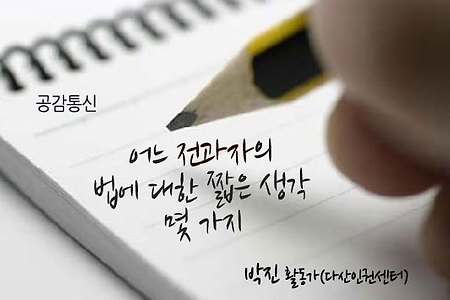 공감통신
어느 전과자의
법에 대한 짧은 생각
몇 가지
박진 활동가(다산인권센터)